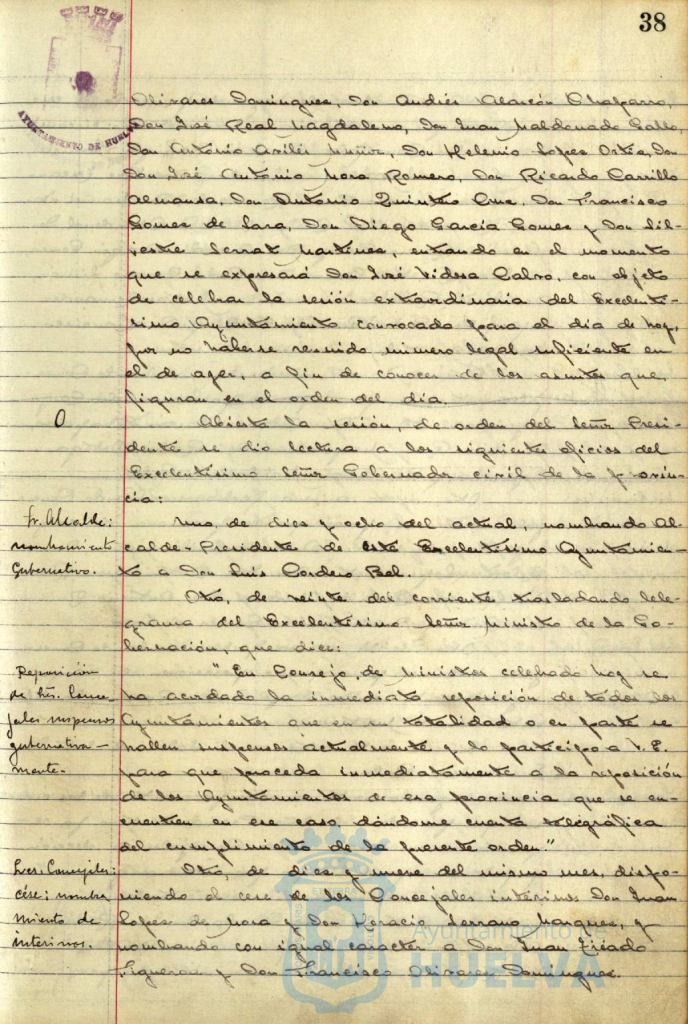 38
AYUNTAMIENTO DE HUELVA
Olivares Dominguez, Don Andrés Alarcón Chaparro,
Don José Real Magdaleno, Don Juan Maldonado Gallo,
Don Antonio Avilés Muñoz, Don Helenio Lopez Ortiz, Don
Don José Antonio Mora Romero, Don Ricardo Carrillo
Almansa, Don Antonio Quintero Cruz, Don Francisco
Gomez de Lara, Don Diego García Gomez y Don Sil-
vestre Serrat Martinez, entrando en el momento
que se expresará Don José Vidosa Calvo, con objeto
de celebrar la sesión extraordinaria del Excelentí-
simo Ayuntamiento convocada para el dia de hoy,
por no haberse reunido número legal suficiente en
el de ayer, a fin de conocer de los asuntos que
figuran en el orden del día.
O
Abierta la sesión, de orden del Señor Presi-
dente se dio lectura a los siguientes oficios del
Excelentísimo Señor Gobernador civil de la provin-
cia:
Sr. Alcalde:
nombramiento
Gubernativo.
Uno, de diez y ocho del actual, nombrando Al-
calde-Presidente de este Excelentísimo Ayuntamien-
to a Don Luis Cordero Bel.
Otro, de veinte del corriente trasladando tele-
grama del Excelentísimo Señor Ministro de la Go-
bernación, que dice:
Reposición
de Sres. Conce-
jales suspensos
gubernativa-
mente.
"En Consejo de Ministros celebrado hoy se
ha acordado la inmediata reposición de todos los
Ayuntamientos que en su totalidad o en parte se
hallen suspensos actualmente y lo participo a V. E.
para que proceda inmediatamente a la reposición
de los Ayuntamientos de esa provincia que se en-
cuentren en ese caso, dándome cuenta telegráfica
del cumplimiento de la presente orden."
Sres. Concejales:
cése; nombra
miento de
interinos.
Otro, de diez y nueve del mismo mes, dispo-
niendo el cese de los Concejales interinos Don Juan
Lopez de Mora y Don Horacio Serrano Marquez, y
nombrando con igual caracter a Don Juan Tirado
Figueroa y Don Francisco Olivares Dominguez.
Ayuntamiento de
HUELVA